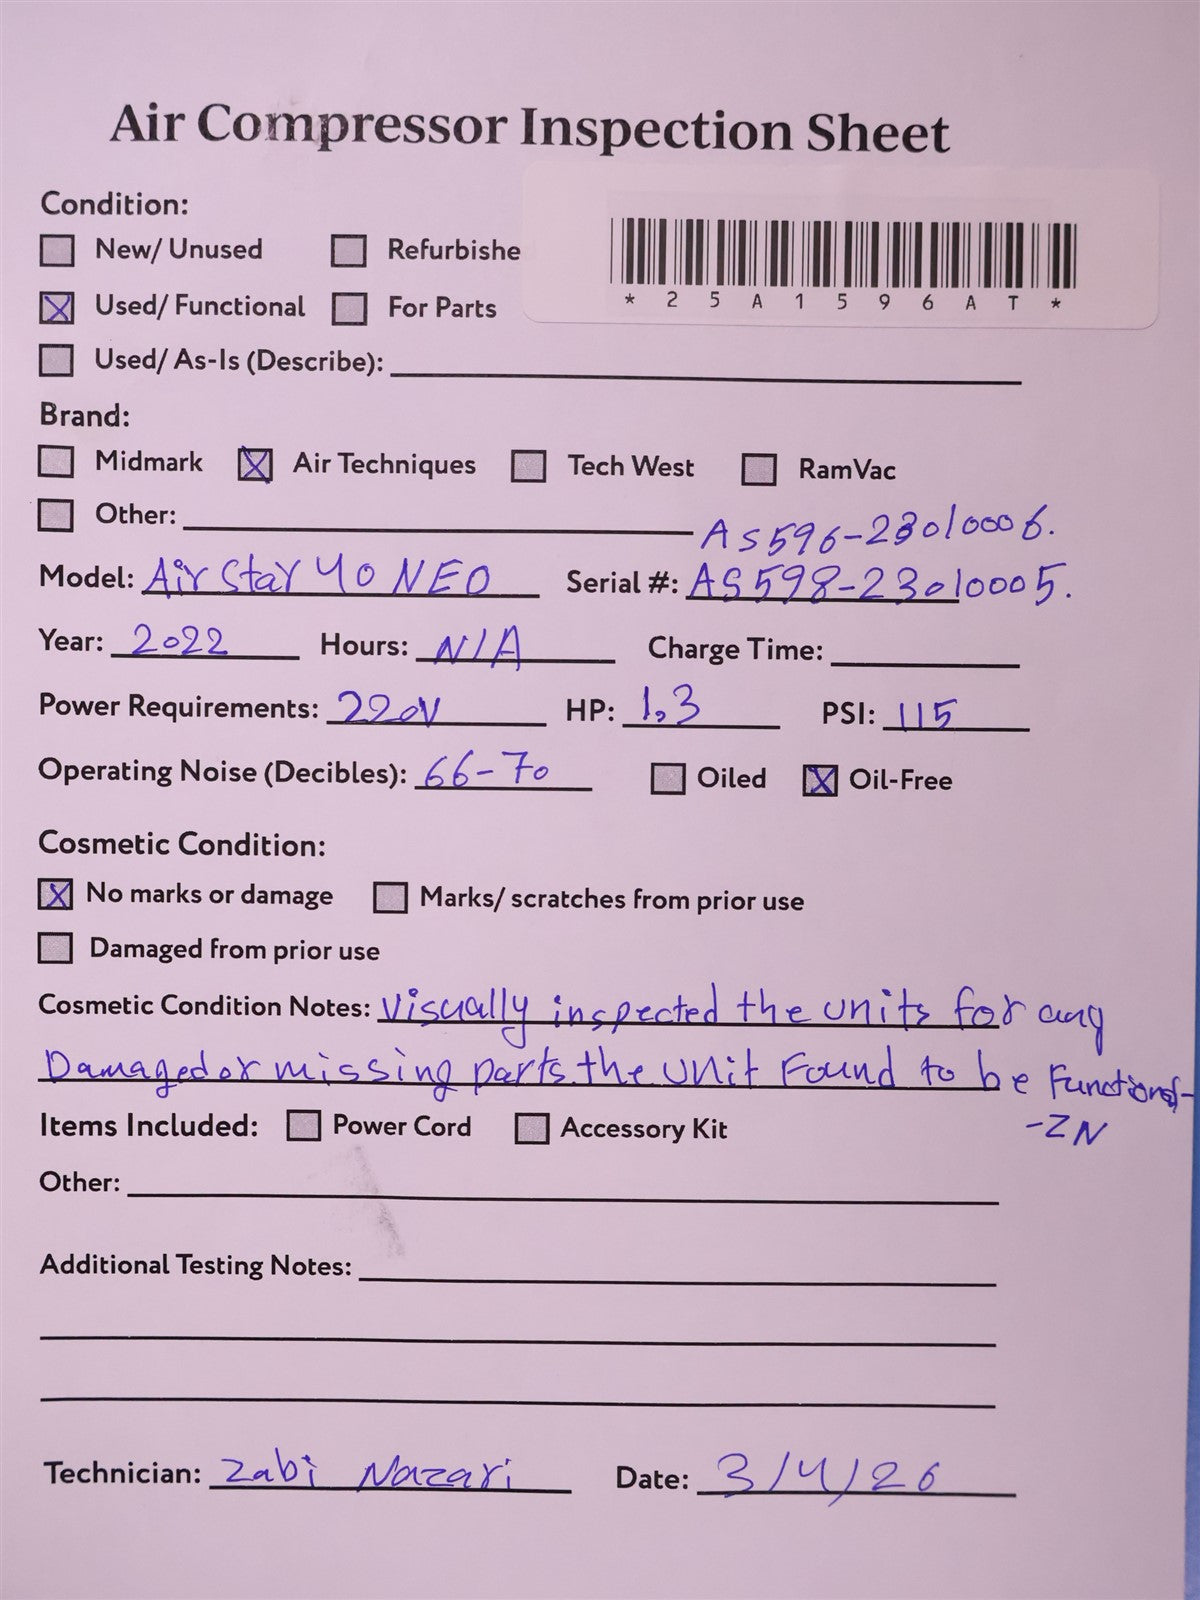 Air Compressor Inspection Sheet
Condition:
New/ Unused Refurbishe
*25A1596AT*
Used/ Functional For Parts
Used/ As-Is (Describe):
Brand:
Midmark Air Techniques Tech West RamVac
Other: AS596-23010006.
Model: Air Star 40 NEO Serial #: AS598-23010005.
Year: 2022 Hours: N/A Charge Time:
Power Requirements: 220V HP: 1,3 PSI: 115
Operating Noise (Decibles): 66-70 Oiled Oil-Free
Cosmetic Condition:
No marks or damage Marks/ scratches from prior use
Damaged from prior use
Cosmetic Condition Notes: Visually inspected the units for any
Damaged or missing parts. the unit Found to be Functional-
-ZN
Items Included: Power Cord Accessory Kit
Other:
Additional Testing Notes:
Technician: Zabi Nazari Date: 3/4/26